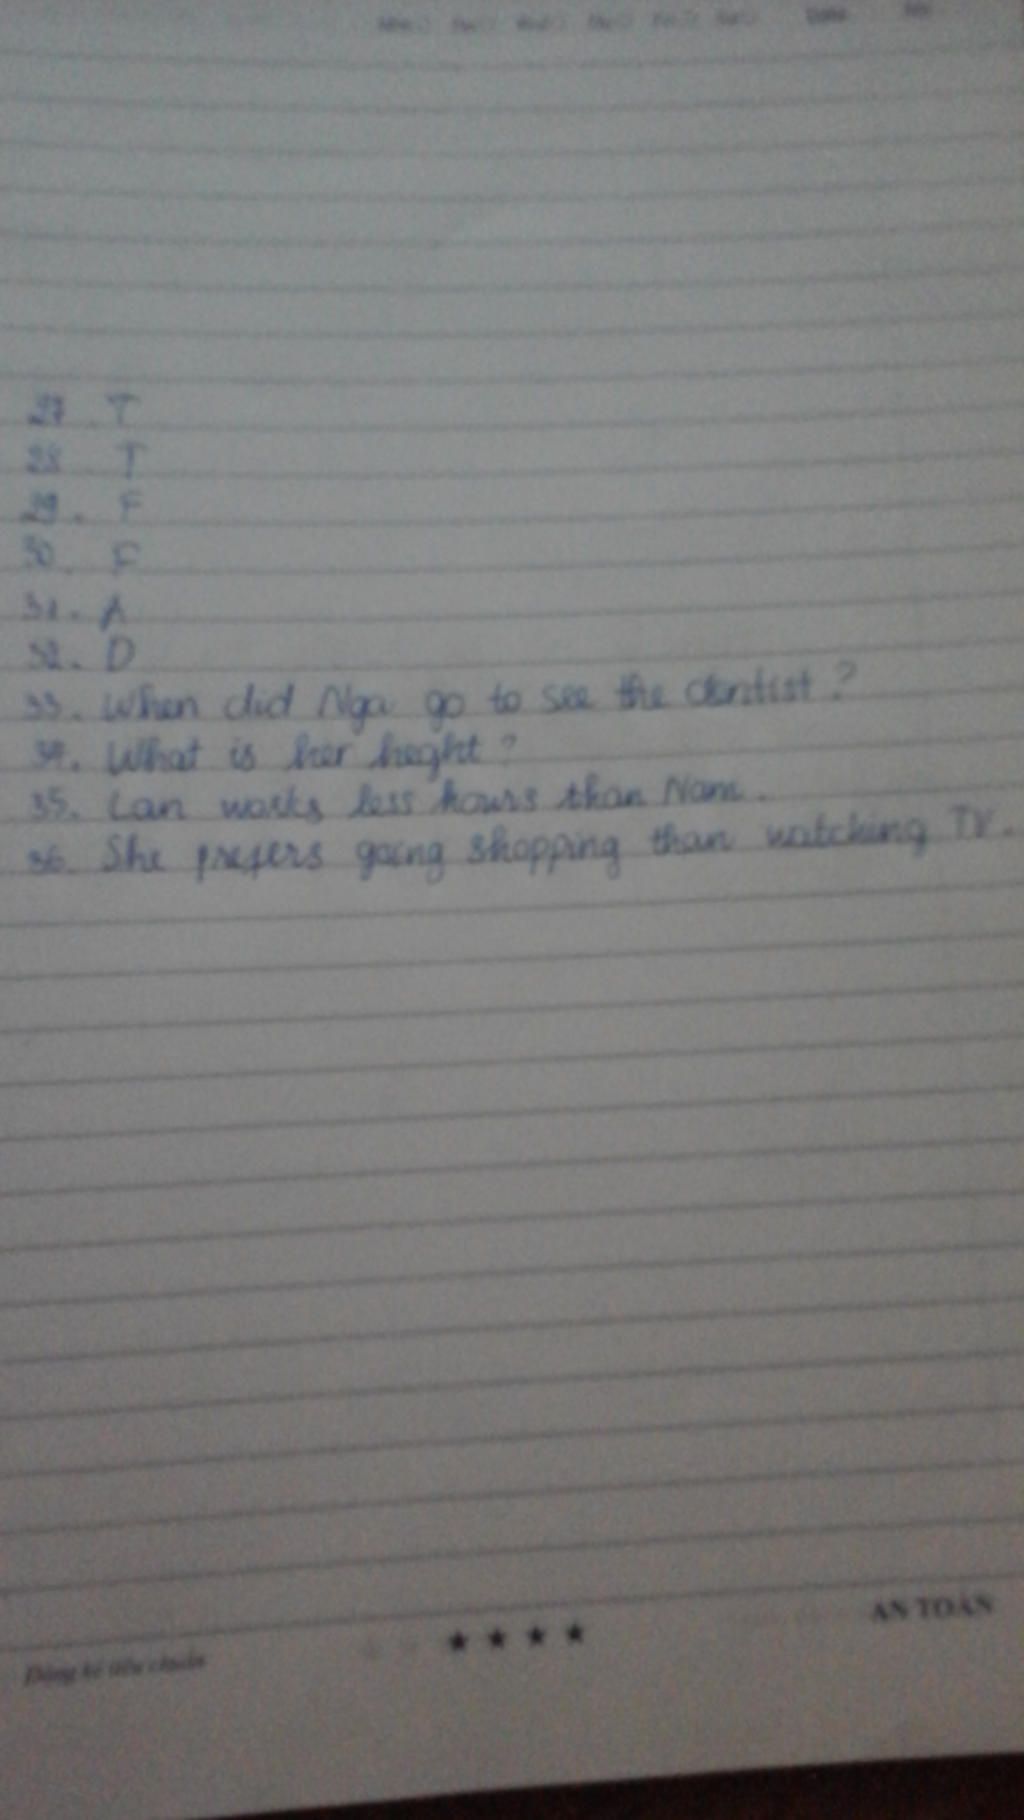 Date
27. T
28. T
29. F
30. F
31. A
32. D
33. When did Nga go to see the dentist?
34. What is her heght?
35. Lan works less hours than Nam.
36. She prefers going shopping than watching TV.
AN TOÀN
★ ★ ★ ★